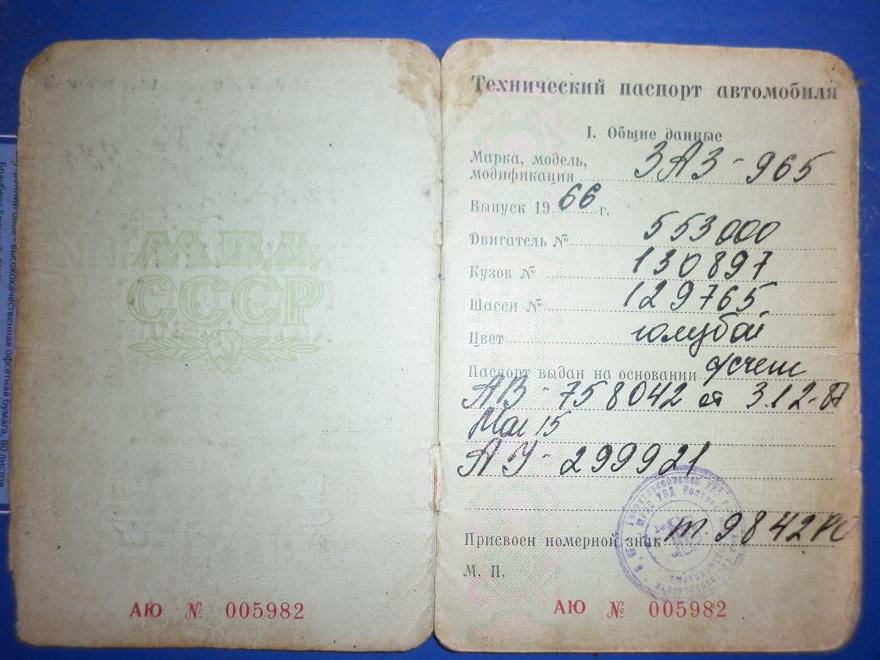 МВД
СССР
АЮ № 005982
Технический паспорт автомобиля
I. Общие данные
Марка, модель,
модификация ЗАЗ-965
Выпуск 19 66 г.
Двигатель № 553000
Кузов № 130897
Шасси № 129765
Цвет голубой
Паспорт выдан на основании
АВ-758042 от 3.12.87
АУ-299921
Присвоен номерной знак т 9842 РО
М. П.
АЮ № 005982
высококачественная офсетная бумага, 80 листов